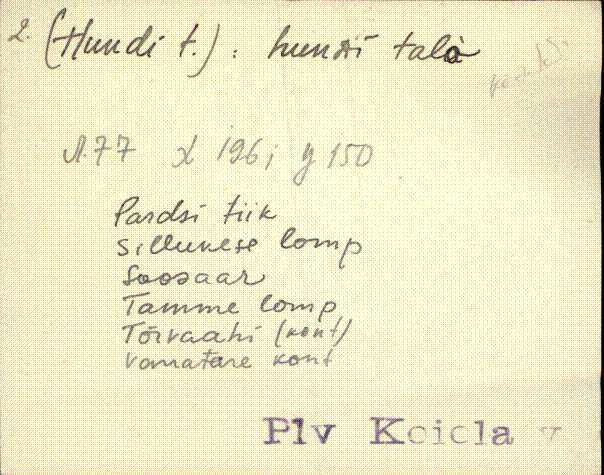 2. (Hundi t.) : hundi talo
Л.77 X 196; y 150
Pardsi tiik
Sillukese lomp
Soosaar
Tamme lomp
Tõrvaahi (kont)
Vanatare kont
Plv Koiola v